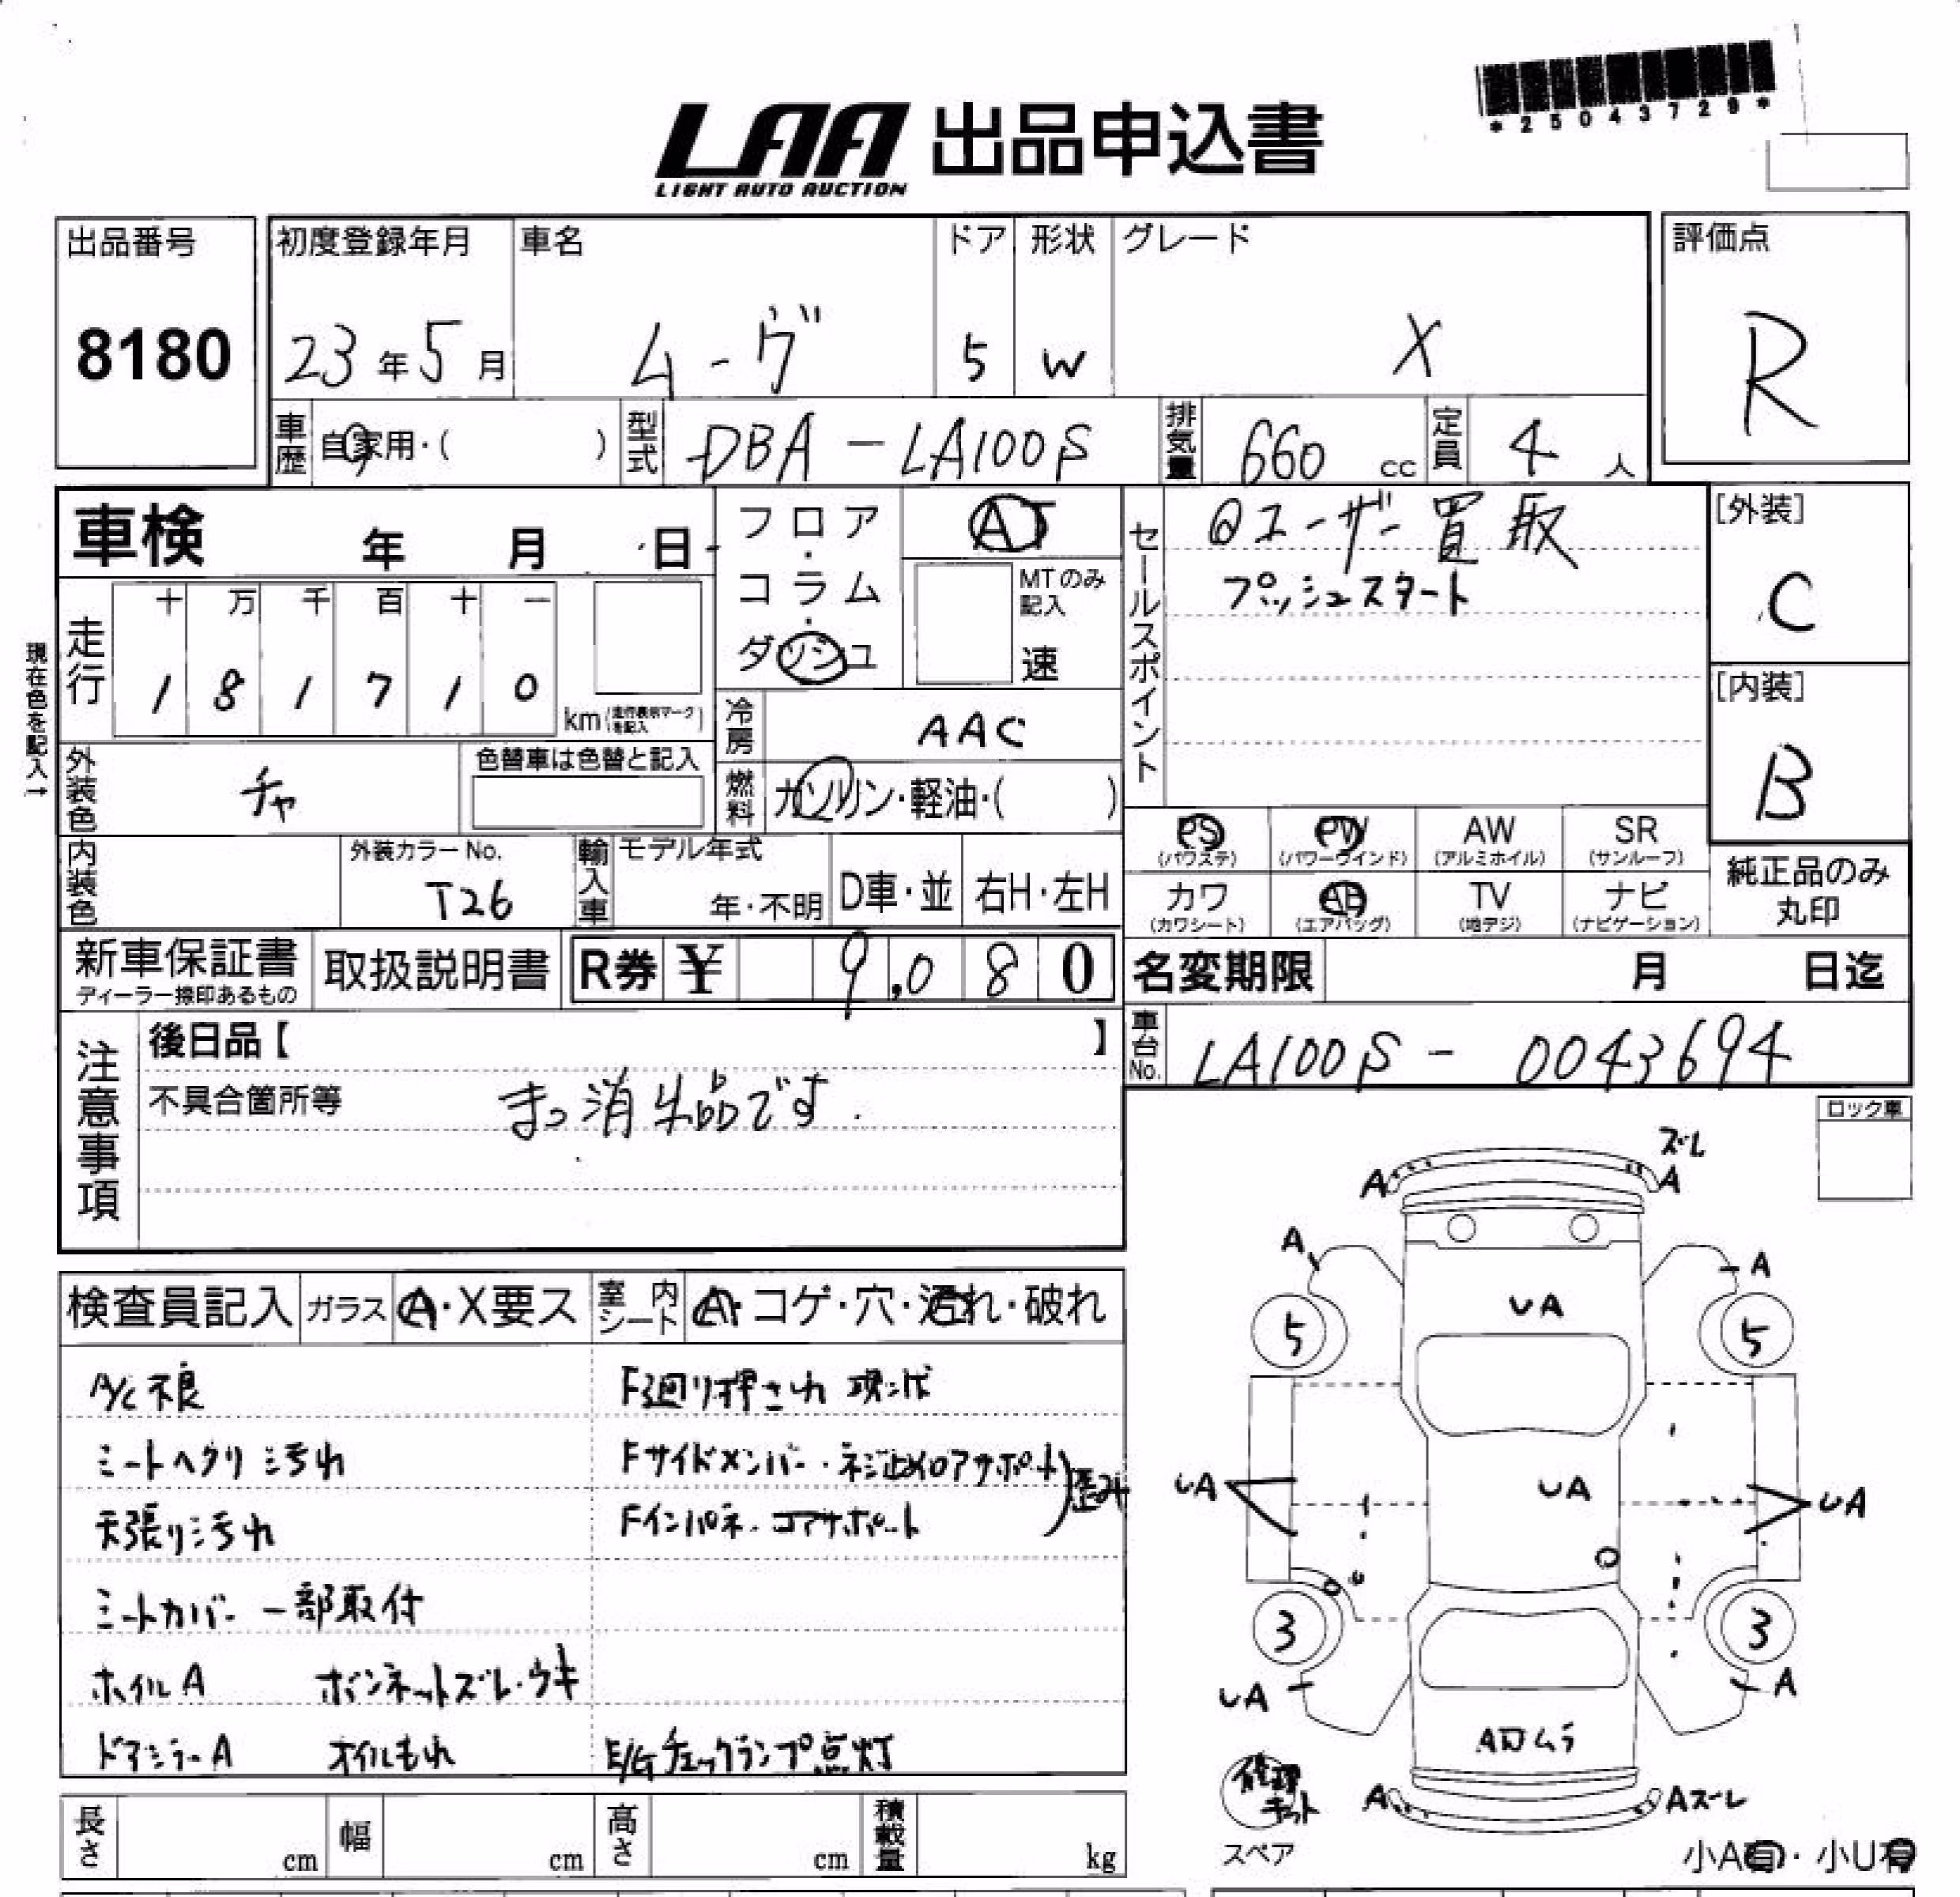 *25043729*
LAA 出品申込書
LIGHT AUTO AUCTION
出品番号
8180
初度登録年月 車名 ドア 形状 グレード
23年5月 ムーヴ 5 W X
評価点
R
車歴 自家用・( ) 型式 DBA-LA100S 排気量 660cc 定員 4人
車検 年 月 日
フロア・コラム・ダッシュ
AT
MTのみ記入
速
セールスポイント
@ユーザー買取
プッシュスタート
[外装]
C
[内装]
B
現在色を記入↑
走行
十 万 千 百 十 一
1 8 1 7 1 0 km(走行表示マークを記入)
冷房 AAC
燃料 ガソリン・軽油・( )
外装色 チャ
色替車は色替と記入
内装色
外装カラーNo.
T26
輸入車 モデル年式
年・不明 D車・並 右H・左H
PS (パワステ) PW (パワーウインド) AW (アルミホイル) SR (サンルーフ)
カワ (カワシート) AB (エアバッグ) TV (地デジ) ナビ (ナビゲーション)
純正品のみ
丸印
新車保証書
ディーラー捺印あるもの
取扱説明書
R券 ¥ 9,080
名変期限 月 日迄
車台No. LA100S-0043694
注意事項
後日品【 】
不具合箇所等 まっ消出品です.
ロック車
検査員記入 ガラス A・X要ス 室内シート A・コゲ・穴・汚れ・破れ
A/C不良 F廻り押され 現状
シートヘタリ 汚れ Fサイドメンバー・ネジ止めロアサポート
天張り汚れ Fインパネ・コアサポート
歪み
シートカバー一部取付
ホイルA ボンネットズレ・ウキ
ドアミラーA オイルもれ E/Gチェックランプ点灯
長さ cm 幅 cm 高さ cm 積載量 kg
ズレ
A A
A A
UA
5 5
UA UA UA
3 3
UA A
A凹ムラ
修理キット
A Aズレ
スペア
小A有・小U有